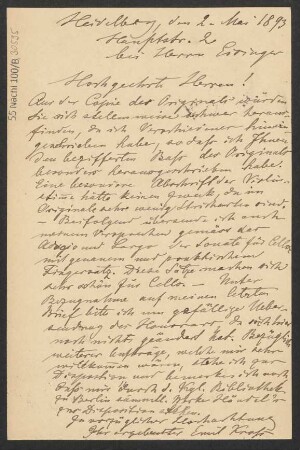 Heidelberg, den 2. Mai 1893
Hauptstr. 2
bei Herrn Eisinger
55 Nachl 100/B
Hochgeehrte Herren!
Aus der Copie des Originals würden
Sie sich stellenweise schwer heraus-
finden, da ich Verschiedenes hinein-
geschrieben habe, sodass ich Ihnen
den bezifferten Bass des Originals
besonders herausgeschrieben habe.
Eine besondere Abschrift der Violin-
stimme hätte keinen Zweck, da im
Original sehr
– Beifolgend übersende ich auch
meinem Versprechen gemäss das
Adagio und Largo der Sonate für Cello,
mit genauem und praktischem
Fingersatz. Diese Sätze machen sich
sehr schön für Cello. – Unter
Bezugnahme auf meinen letzten
Brief bitte ich um gefällige Ueber-
sendung des Honorars, da sich hier
noch nichts geändert hat. Bezüglich
weiterer Aufträge, welche mir sehr
willkommen wären, stehe ich zur
Disposition und bemerke ich noch
dass mir durch d. Kgl. Bibliothek
zu Berlin sämmtl. Werke Händel's
zur Disposition stehen.
In vorzüglicher Hochachtung
Ihr ergebenster Emil Krause